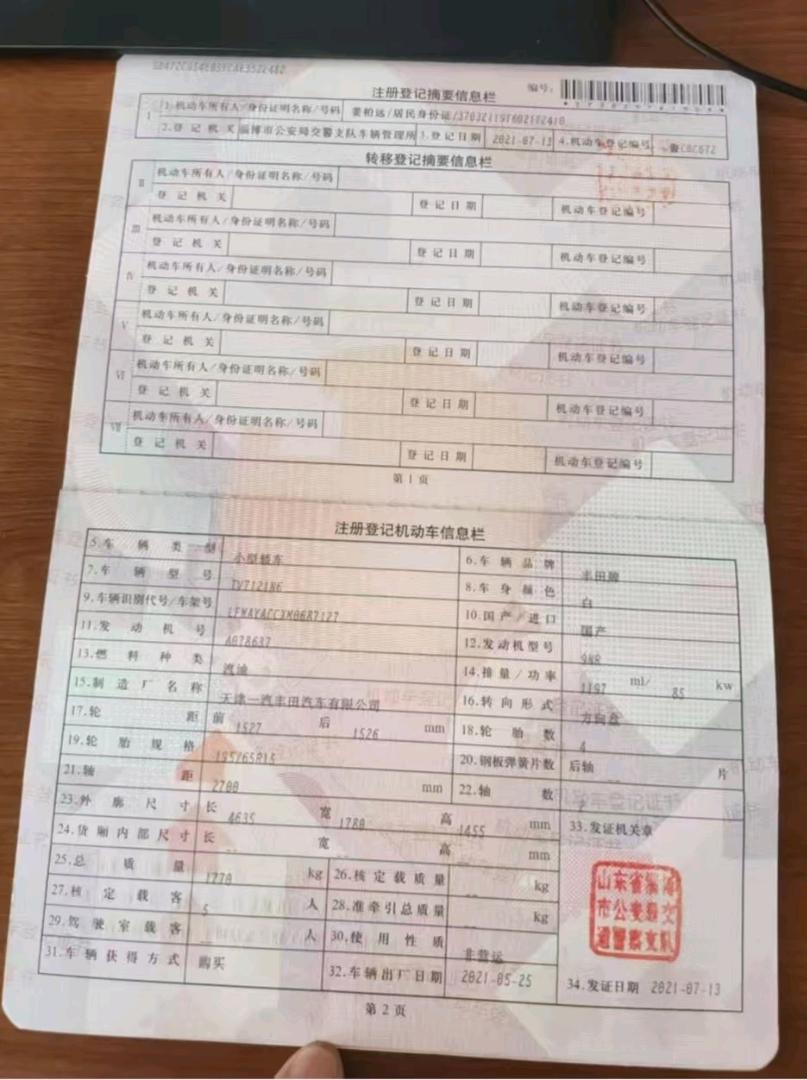 注册登记摘要信息栏
编号:
Ⅰ 1.机动车所有人/身份证明名称/号码 姜柏远/居民身份证/370321197602102410
2.登记机关 淄博市公安局交警支队车辆管理所 3.登记日期 2021-07-13 4.机动车登记编号 鲁CBC672
转移登记摘要信息栏
Ⅱ 机动车所有人/身份证明名称/号码
登记机关 登记日期 机动车登记编号
Ⅲ 机动车所有人/身份证明名称/号码
登记机关 登记日期 机动车登记编号
Ⅳ 机动车所有人/身份证明名称/号码
登记机关 登记日期 机动车登记编号
Ⅴ 机动车所有人/身份证明名称/号码
登记机关 登记日期 机动车登记编号
Ⅵ 机动车所有人/身份证明名称/号码
登记机关 登记日期 机动车登记编号
Ⅶ 机动车所有人/身份证明名称/号码
登记机关 登记日期 机动车登记编号
第1页
注册登记机动车信息栏
5.车辆类型 小型轿车 6.车辆品牌 丰田牌
7.车辆型号 8.车身颜色 白
9.车辆识别代号/车架号 LFMAYACC3M0687127 10.国产/进口 国产
11.发动机号 A078637 12.发动机型号
13.燃料种类 汽油 14.排量/功率 1197 ml/ 85 kw
15.制造厂名称 天津一汽丰田汽车有限公司 16.转向形式 方向盘
17.轮距 前 1527 后 1526 mm 18.轮胎数 4
19.轮胎规格 195/65R15 20.钢板弹簧片数 后轴 -- 片
21.轴距 2700 mm 22.轴数 2
23.外廓尺寸 长 4635 宽 1780 高 1455 mm 33.发证机关章
24.货厢内部尺寸 长 -- 宽 -- 高 -- mm
25.总质量 1770 kg 26.核定载质量 -- kg
27.核定载客 5 人 28.准牵引总质量 -- kg
29.驾驶室载客 -- 人 30.使用性质 非营运
31.车辆获得方式 购买 32.车辆出厂日期 2021-05-25 34.发证日期 2021-07-13
山东省淄博
市公安局交
通警察支队
第2页